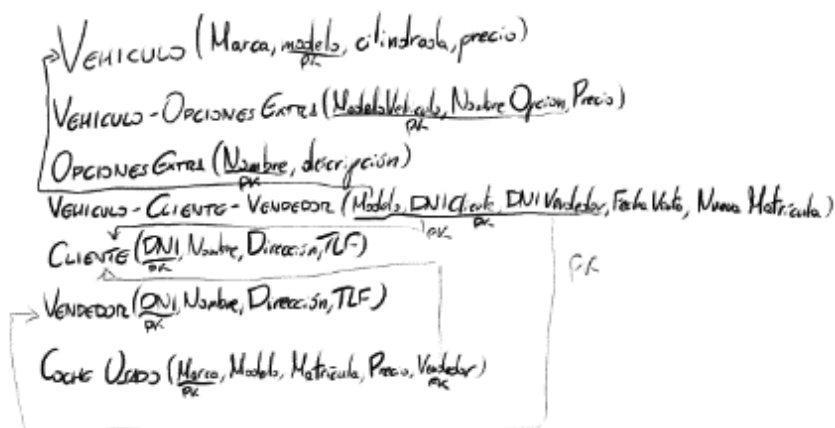 VEHICULO (Marca, modelo, cilindrada, precio)
PK
VEHICULO-OPCIONES EXTRAS (ModeloVehiculo, Nombre Opcion, Precio)
PK
OPCIONES EXTRA (Nombre, descripción)
PK
VEHICULO-CLIENTE-VENDEDOR (Modelo, DNI Cliente, DNI Vendedor, Fecha Venta, Nueva Matrícula)
PK
CLIENTE (DNI, Nombre, Dirección, TLF)
PK
VENDEDOR (DNI, Nombre, Dirección, TLF)
PK
COCHE USADO (Marca, Modelo, Matrícula, Precio, Vendedor)
PK